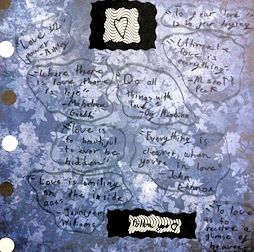 "Love is
power"
- Ashley
"Where there
is love, there
is life"
- Mahatma
Gandhi
"Love is
to beautiful
to ever be
hidden"
"Love is smiling
on the inside
- Jennifer
Williams
"Do all
things with
love"
- Og Mandino
"To fear love
is to fear
love is
everything"
"Everything is
clearer when
you're in love"
- John
Lennon
"To love
is to
receive a
glimpse of
heaven"